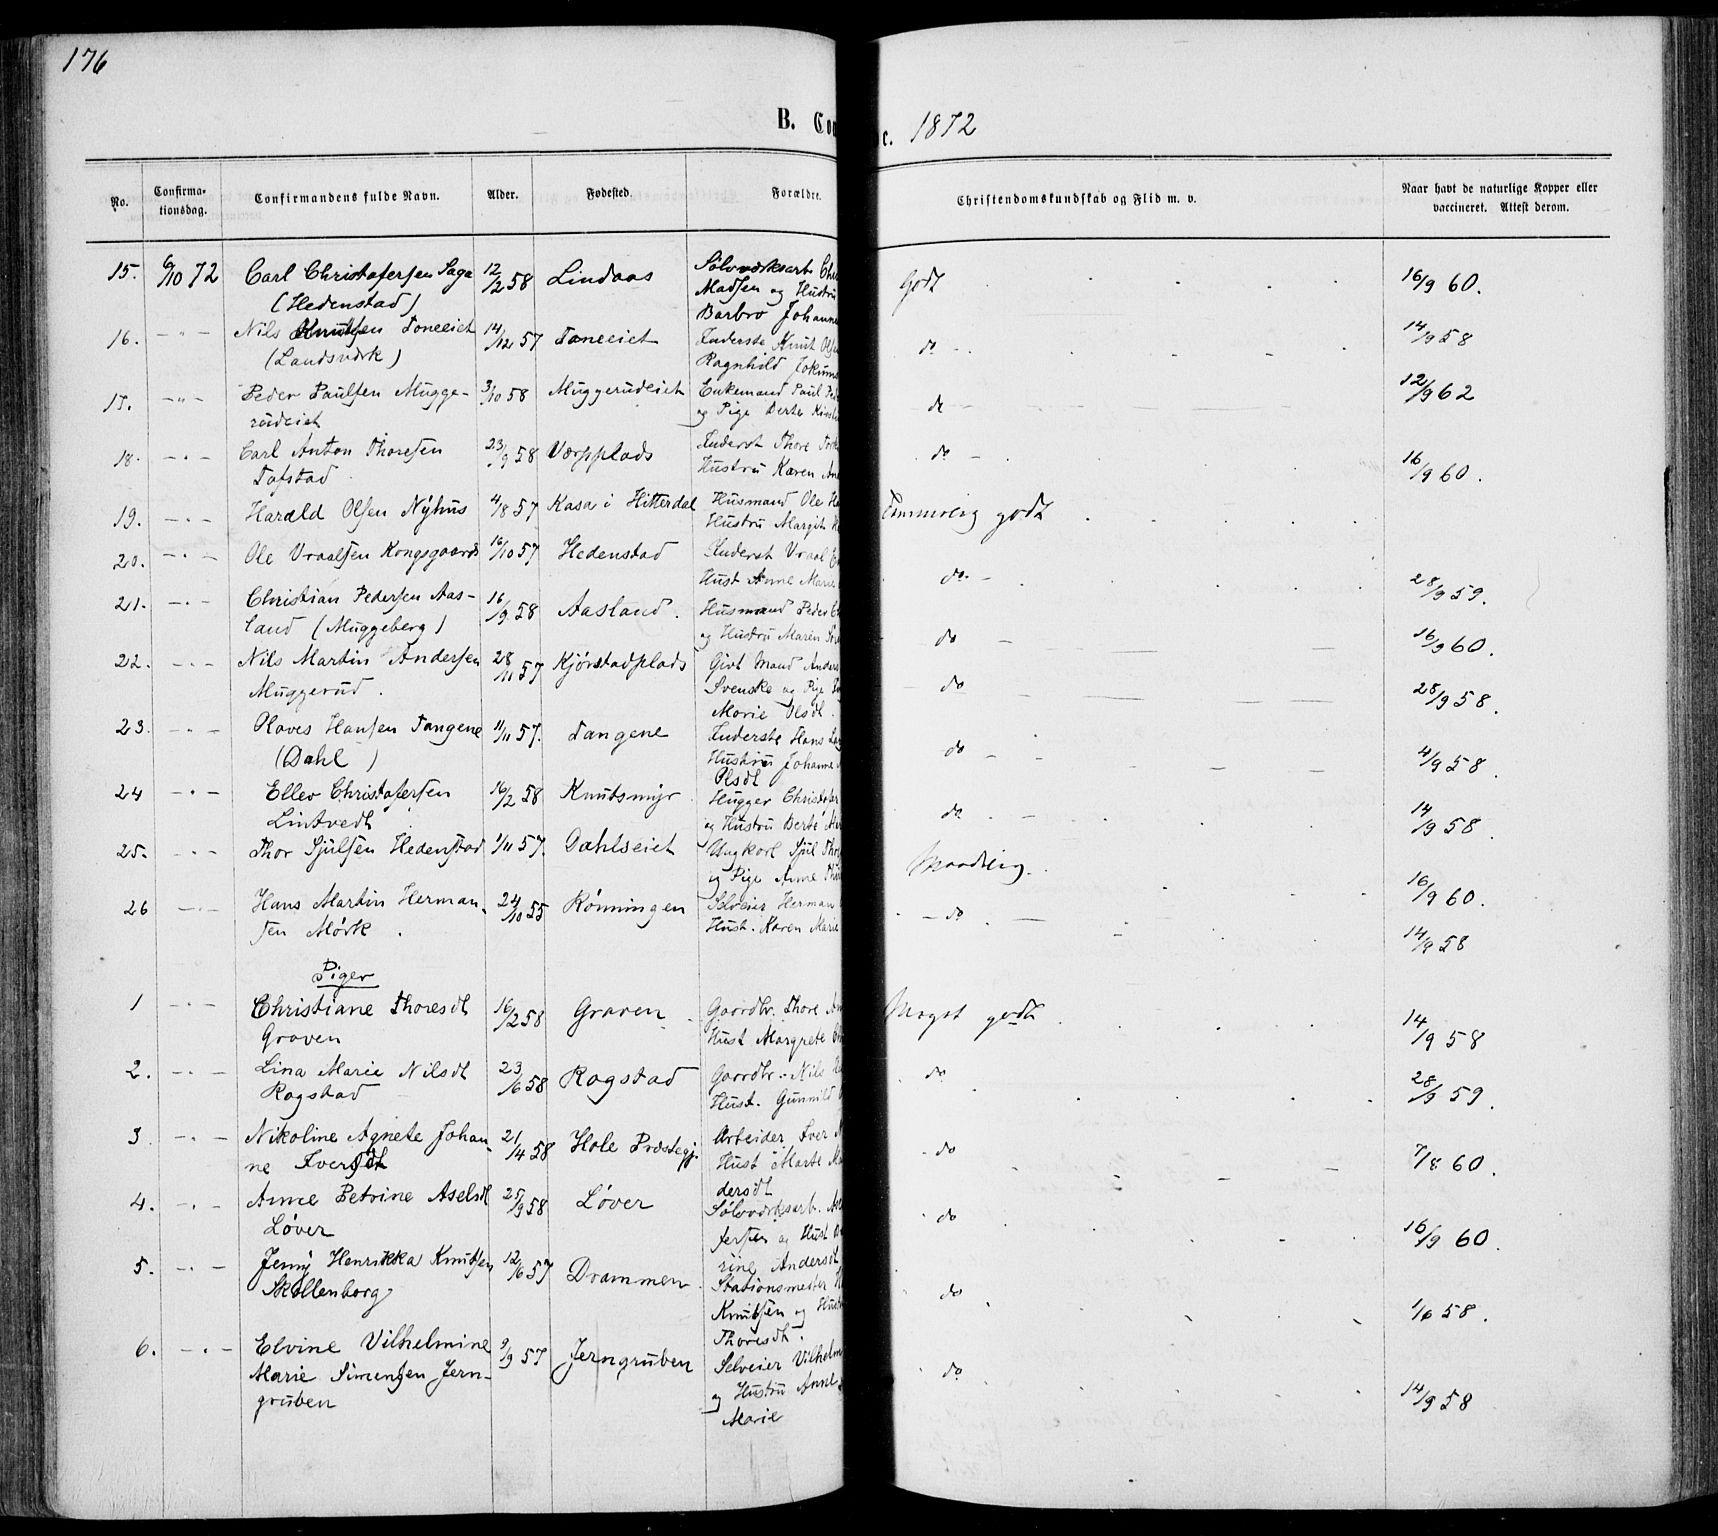 176
B. Con
c. 1872
No. Confirma- tionsdag. Confirmandens fulde Navn. Alder. Fødested. Forældre. Christendomskundskab og Flid m. v. Naar havt de naturlige Kopper eller vaccineret. Attest derom.
15. 6/10 72 Carl Christofersen Saga 12/2 58 Lindaas Sølvværksarb. Chr Godt 16/9 60.
(Hedenstad) Madsen og Hustru
Barbro Johanne
16. - " - Nils Knutsen Toneeiet 14/12 57 Toneeiet Inderste Knut Olsen do 14/9 58
(Landsværk) Ragnhild Jokums
17. - " - Peder Paulsen Mugge- 3/10 58 Muggerudeiet Enkemand Paul Ped do 12/9 62
rudeiet og Pige Berte
18. - " - Carl Anton Thoresen 23/9 58 Værpplads Inderst Thore do 16/9 60.
Tofstad Hustru Karen An
19. - " - Harald Olsen Nyhus 4/8 57 Kasa i Hitterdal Husmand Ole He Temmelig godt
Hustru Margit
20. - " - Ole Vraalsen Kongsgaard 16/10 57 Hedenstad Inderst Vraal do 28/9 59.
Hust Anne Marie
21. - " - Christian Pedersen Aas- 16/9 58 Aasland. Husmand Peder do 16/9 60.
land (Muggeberg) og Hustru Maren
22. - " - Nils Martin Andersen 28/11 57 Kjørstadplads Givt Mand Anders do 28/9 58.
Muggerud. Svenske og Pige
Marie Olsdt.
23. - " - Olaves Hansen Tangene 11/11 57. Tangene Inderste Hans do 4/9 58.
(Dahl) Hustru Johanne
Olsdt
24 - " - Ellev Christofersen 16/2 58 Knutsmyr Hugger Christofer do 14/9 58.
Lintvedt og Hustru Berte
25. - " - Thor Sjulsen Hedenstad 1/11 57. Dahlseiet Ungkarl Sjul Maadelig. 16/9 60.
og Pige Anne
26 - " - Hans Martin Herman- 24/10 55 Rønningen Selveier Herman do 14/9 58
sen Mørk. Hust. Karen Marie
Piger
1 - " - Christiane Thoresdt 16/2 58 Graven Gaardbr. Thore Meget godt 14/9 58
Graven Hust Margrete
2. - " - Lina Marie Nilsdt 23/6 58 Rogstad Gaardbr. Nils do 28/9 59.
Rogstad Hust. Gunnild
3 - " - Nikoline Agnete Johan- 21/4 58 Hole Præstegj. Arbeider Iver do 7/8 60.
ne Iversdt Hust Marte
dersdt
4. - " - Anne Petrine Aselsdt 25/9 58 Løver Sølvværksarb. do 16/9 60.
Løver fersen og Hust
rine Andersdt
5. - " - Jenny Henrikka Knutsen 12/6 57 Drammen Stationsmester do 1/6 58.
Skollenborg Knutsen og Hust
Thoresdt.
6. - " - Elvine Vilhelmine 9/9 57 Jerngruben Selveier Vilhelm do 14/9 58
Marie Simensen Jern- og Hustru Anne
gruben Marie